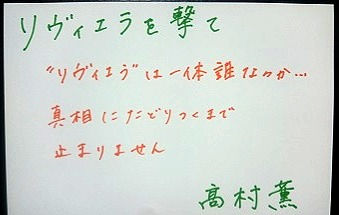 リヴィエラを撃て
"リヴィエラ"は一体誰なのか…
真相にたどりつくまで
止まりません
高村薫